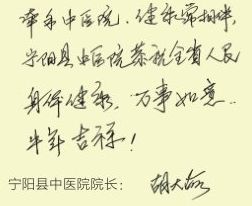 牵手中医院，健康常相伴，
宁阳县中医院恭祝全省人民
身体健康，万事如意，
牛年吉祥！
宁阳县中医院院长：